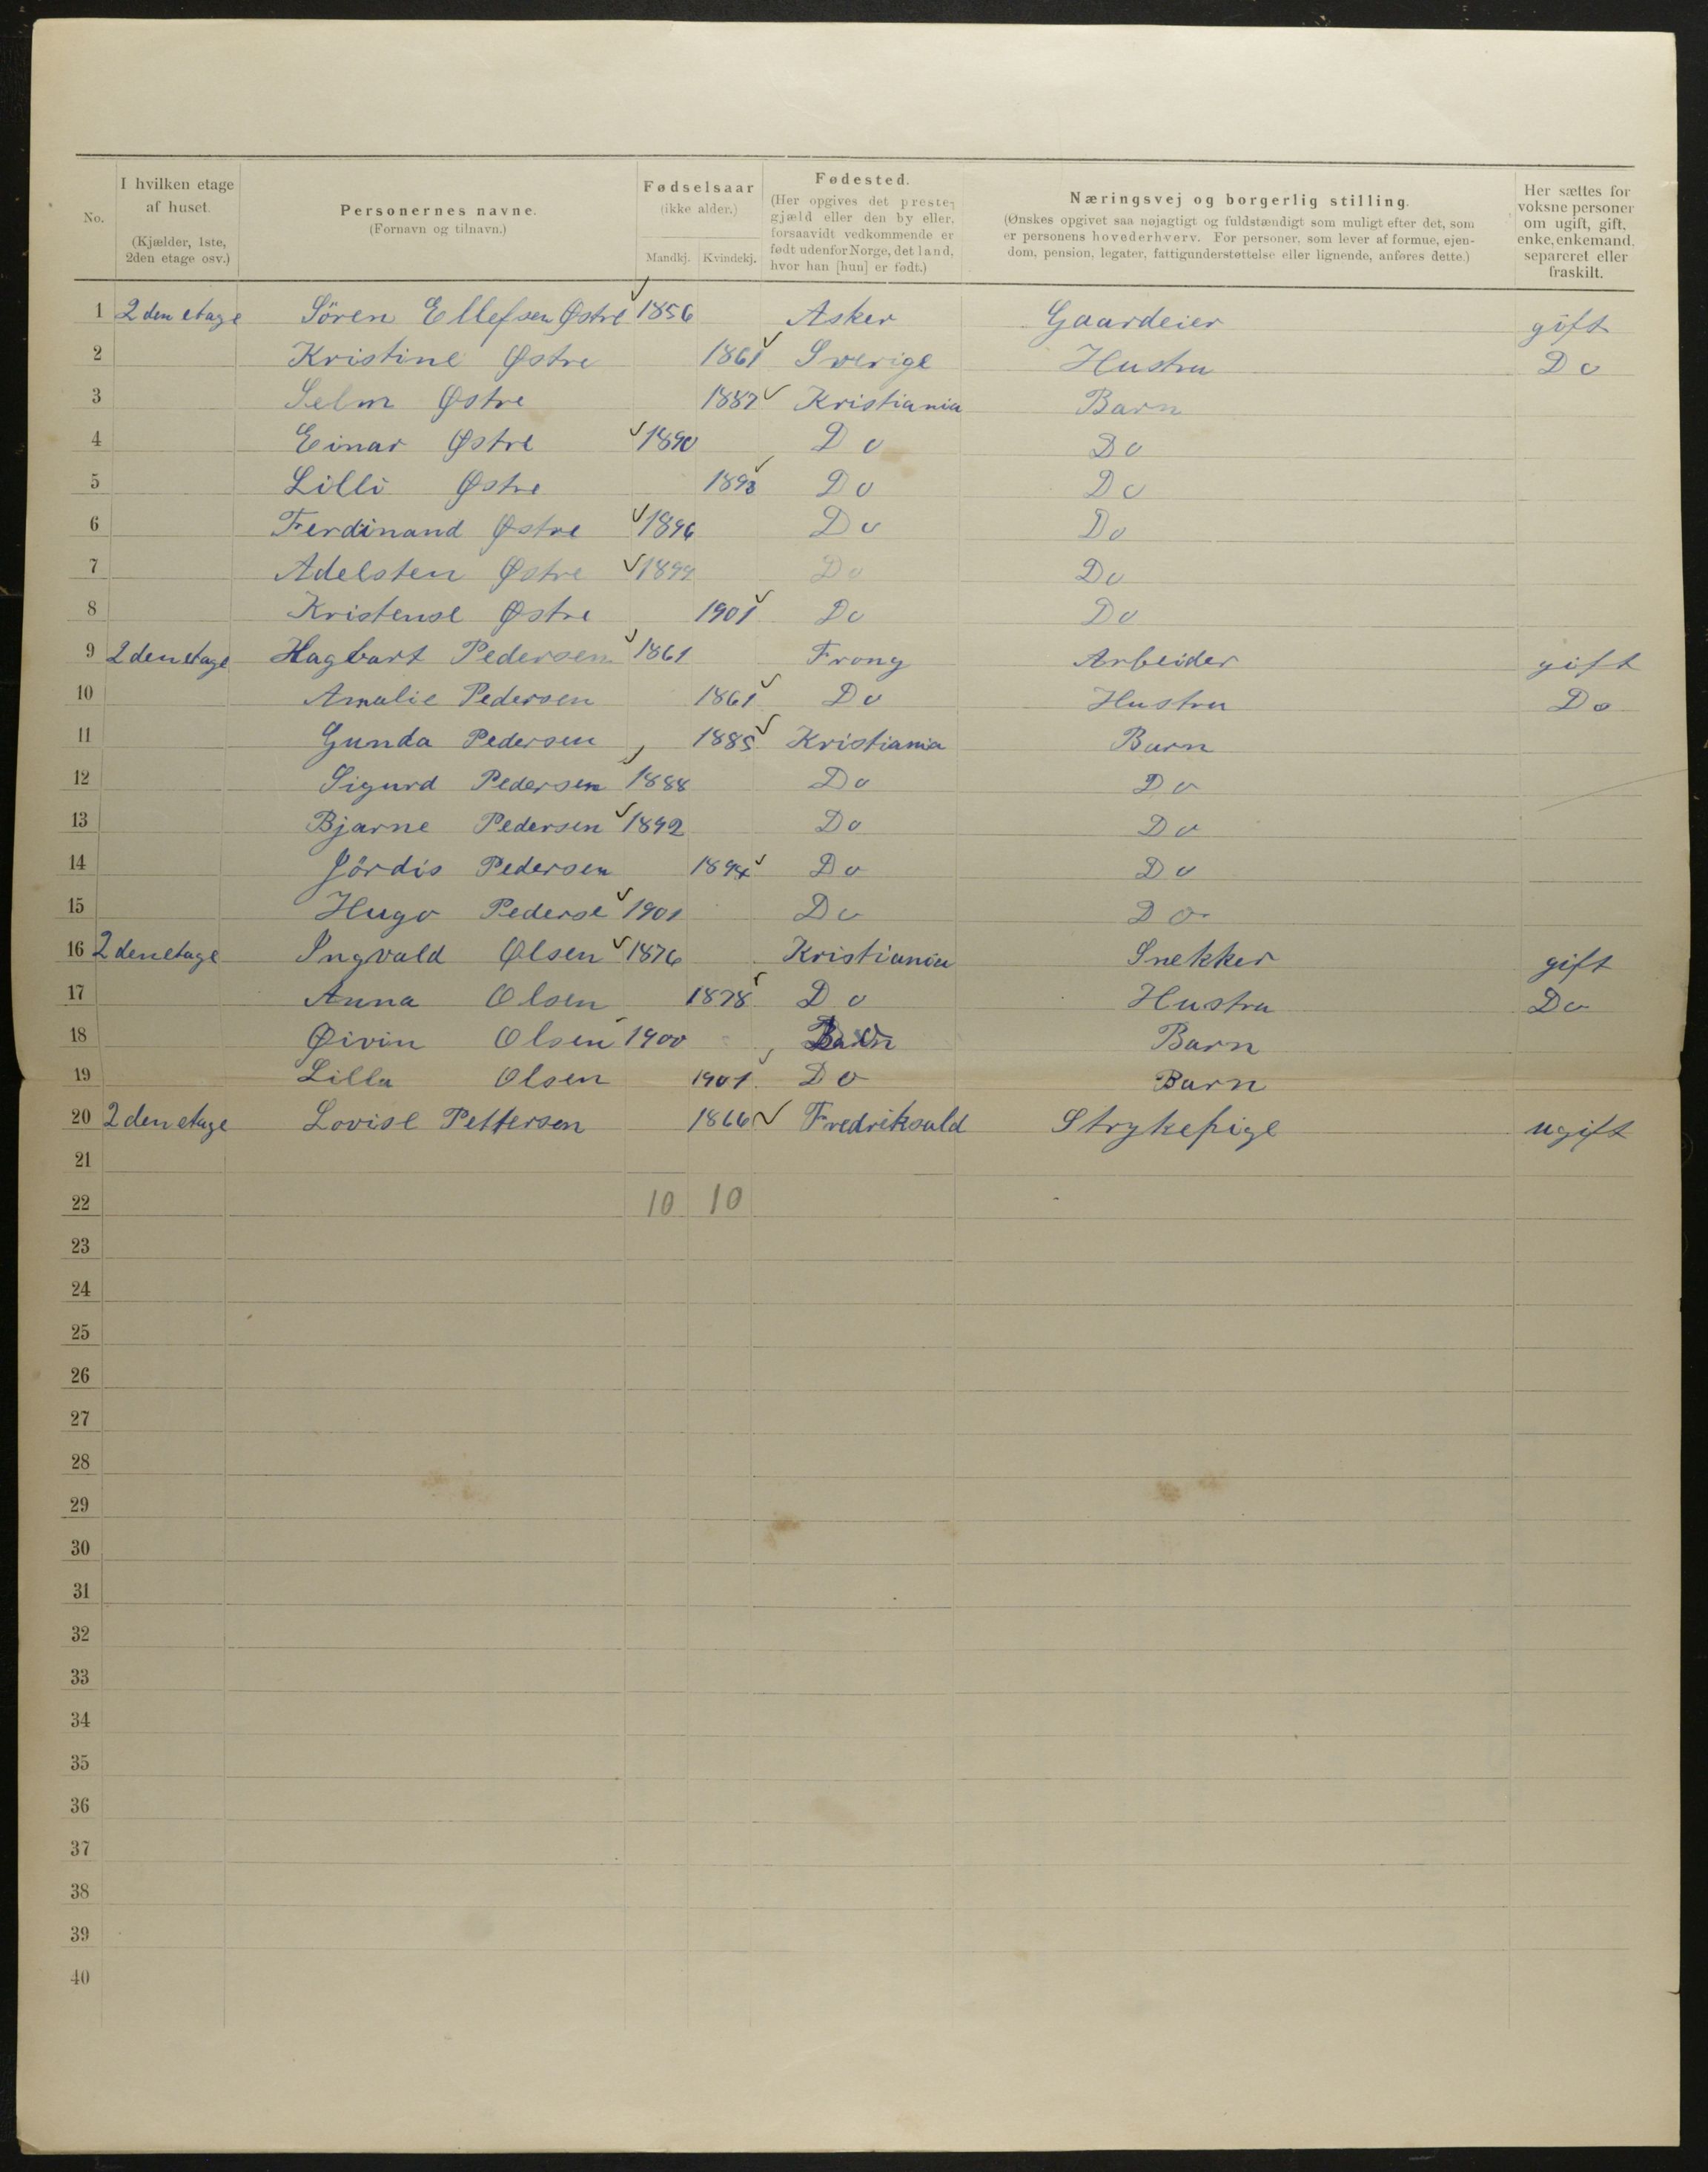 No.
I hvilken etage af huset. (Kjælder, 1ste, 2den etage osv.)
Personernes navne. (Fornavn og tilnavn.)
Fødselsaar (ikke alder.) Mandkj. Kvindekj.
Fødested. (Her opgives det prestegjæld eller den by eller, forsaavidt vedkommende er født udenfor Norge, det land, hvor han [hun] er født.)
Næringsvej og borgerlig stilling. (Ønskes opgivet saa nøjagtigt og fuldstændigt som muligt efter det, som er personens hovederhverv. For personer, som lever af formue, ejendom, pension, legater, fattigunderstøttelse eller lignende, anføres dette.)
Her sættes for voksne personer om ugift, gift, enke, enkemand, separeret eller fraskilt.
1 2den etage Sören Ellefsen Østre 1856 Asker Gaardeier gift
2 Kristine Østre 1861 Sverige Hustru Do
3 Selm Østre 1887 Kristiania Barn
4 Einar Østre 1890 Do Do
5 Lilli Østre 1893 Do Do
6 Ferdinand Østre 1896 Do Do
7 Adelsten Østre 1899 Do Do
8 Kristense Østre 1901 Do Do
9 2den etage Hagbart Pedersen 1861 Frong Arbeider gift
10 Amalie Pedersen 1861 Do Hustru Do
11 Gunda Pedersen 1885 Kristiania Barn
12 Sigurd Pedersen 1888 Do Do
13 Bjarne Pedersen 1892 Do Do
14 Jördis Pedersen 1894 Do Do
15 Hugo Pederse 1901 Do Do
16 2den etage Ingvald Olsen 1876 Kristiania Snekker gift
17 Anna Olsen 1878 Do Hustru Do
18 Øivin Olsen 1900 Barn
19 Lilla Olsen 1901 Do Barn
20 2den etage Lovise Pettersen 1866 Fredriksald Strykepige ugift
21
22 10 10
23
24
25
26
27
28
29
30
31
32
33
34
35
36
37
38
39
40